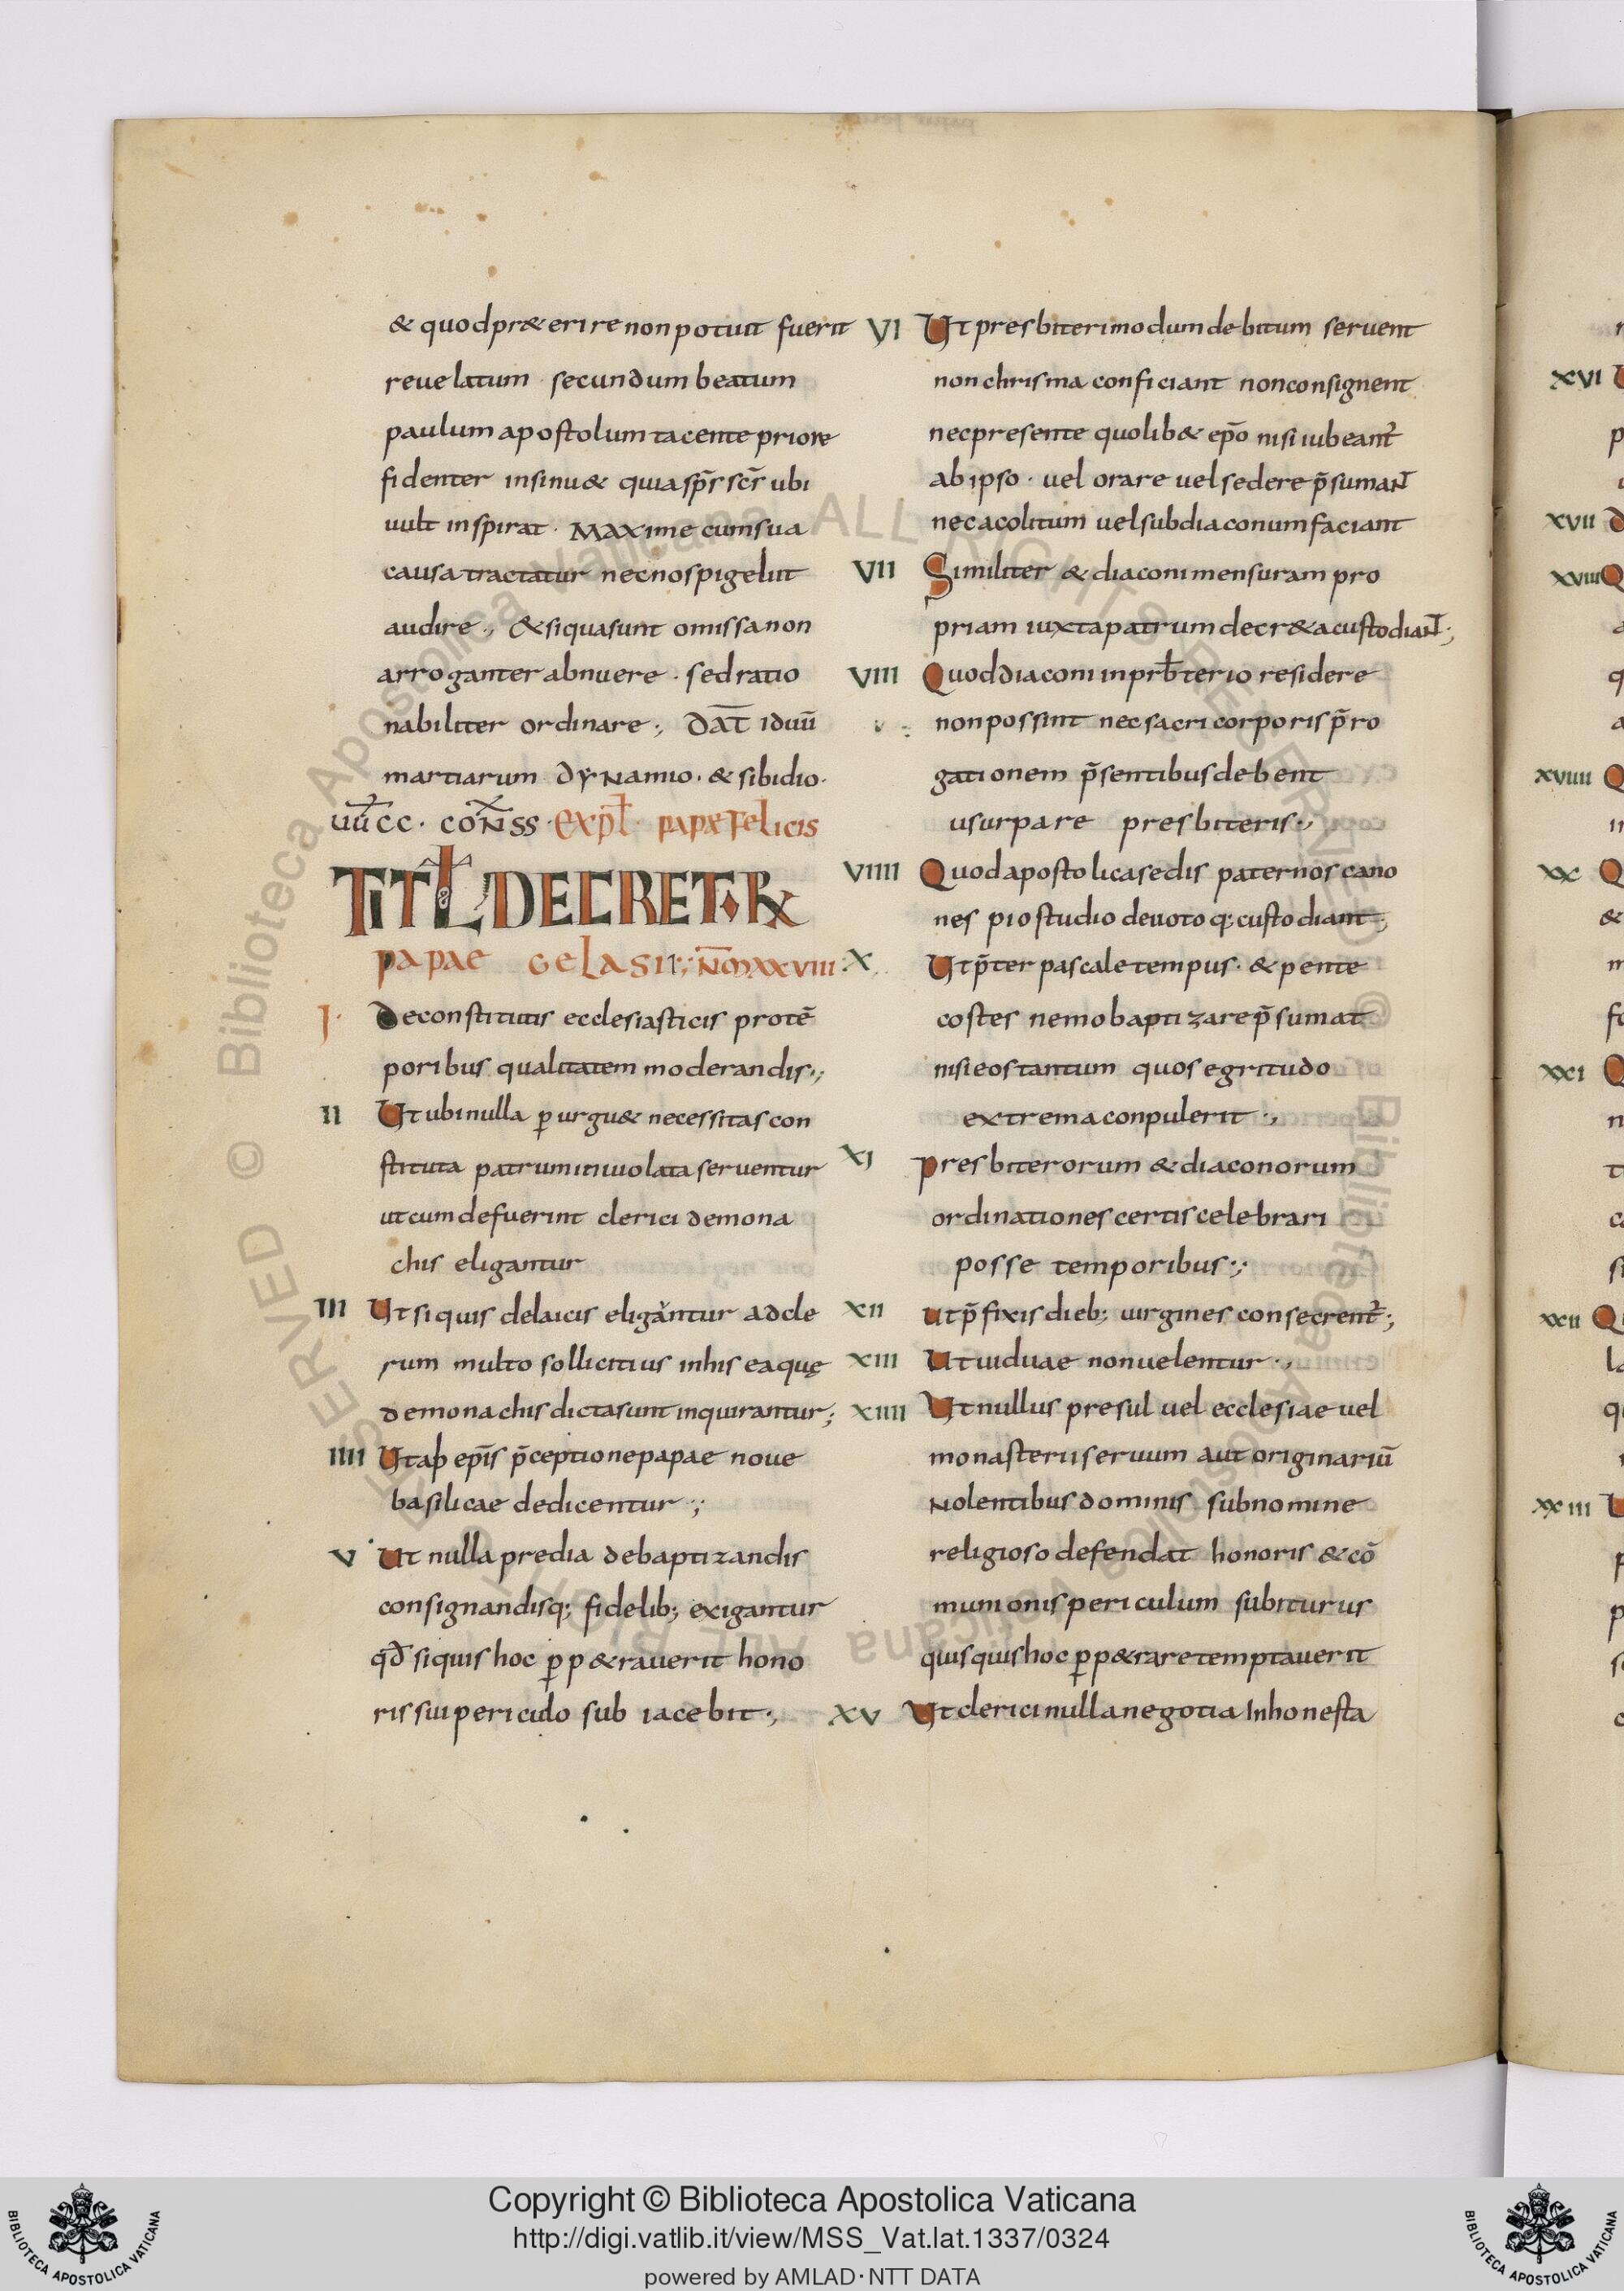 & quod pr&erire non potuit fuerit
reuelatum · secundum beatum
paulum apostolum tacente priore
fidenter insinu& quia sp̄s sc̄s ubi
uult inspirat · Maxime cum sua
causa tractatur nec nos pigebit
audire ·, & siqua sunt omissa non
arroganter abnuere · sed ratio
nabiliter ordinare ·, DAT̄ iduū
martiarum dyNamio · & sibidio ·
uūcc · coN̄ss · exp̄l papæ Felicis
TITL DECRET·R
papae GeLasii ·,· N̄m xxviii ·
I· De constitutis ecclesiasticis pro tē
poribus qualitatem moderandis ·,
II Ut ubi nulla p̱ urgu& necessitas con
stituta patrum inuiolata seruentur
ut cum defuerint clerici de mona
chis eligantur
III Ut si quis de laicis eligantur ad cle
rum multo sollicitius in his ea quę
de monachis dicta sunt inquirantur ;
IIII Ut ab ep̄is p̄ceptione papae noue
basilicae dedicentur ·,·
V Ut nulla predia de baptizandis
consignandisq; fidelib; exigantur
qđ siquis hoc p̱p&rauerit hono
ris sui periculo subiacebit ·,
VI Ut presbiteri modum debitum seruent
non chrisma conficiant non consignent
nec presente quolib& ep̄o nisi iubeant̄
ab ipso · uel orare uel sedere p̄sumaN̄T
nec acolitum uel subdiaconum faciant
VII Similiter & diaconi mensuram pro
priam iuxta patrum decr&a custodiaN̄T ·,
VIII Quod diaconi in prb̄terio residere
non possint nec sacri corporis p̄ro
gationem p̄sentibus debent
usurpare presbiteris ·,
VIIII Quod apostolica sedis paternos cano
nes pio studio deuotoq; custodiant ·,
X Ut p̄ter pascale tempus · & pente
costes nemo baptizare p̄sumat
nisi eos tantum quos egritudo
extrema conpulerit ·,
XI Presbiterorum & diaconorum
ordinationes certis celebrari
posse temporibus ·,·
XII Ut p̄fixis dieb; uirgines consecrent̄ ·,
XIII Ut uiduae non uelentur ·,
XIIII Ut nullus presul uel ecclesiae uel
monasterii seruum aut originariū
Nolentibus dominis sub nomine
religioso defendat honoris & cō
munionis periculum subiturus
quisquis hoc p̱p&rare temptauerit
XV Ut clerici nulla negotia Inhonesta
XVI
XVII
XVIII
XVIIII
XX
XXI
XXII
XXIII
Copyright © Biblioteca Apostolica Vaticana
http://digi.vatlib.it/view/MSS_Vat.lat.1337/0324
powered by AMLAD·NTT DATA
BIBLIOTECA APOSTOLICA VATICANA
BIBLIOTECA APOSTOLICA VATICANA
© Biblioteca Apostolica Vaticana ALL RIGHTS RESERVED © Biblioteca Apostolica Vaticana ALL RIGHTS RESERVED